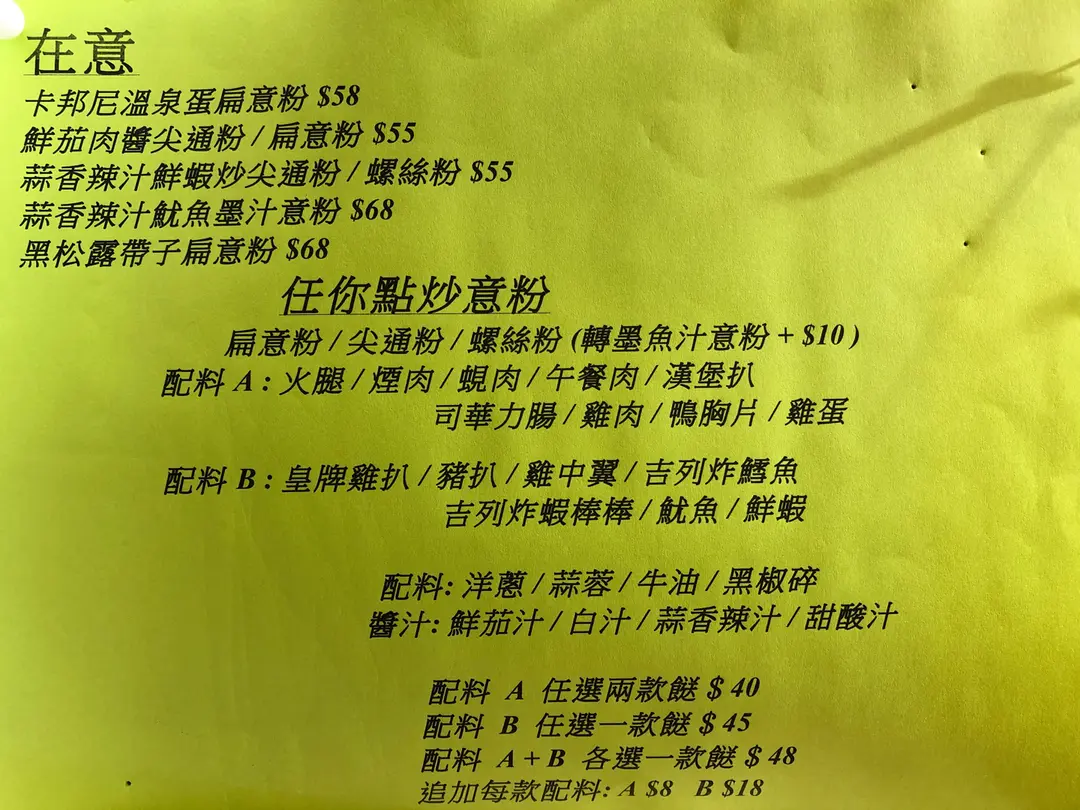 在意
卡邦尼溫泉蛋扁意粉 $58
鮮茄肉醬尖通粉 / 扁意粉 $55
蒜香辣汁鮮蝦炒尖通粉 / 螺絲粉 $55
蒜香辣汁魷魚墨汁意粉 $68
黑松露帶子扁意粉 $68
任你點炒意粉
扁意粉 / 尖通粉 / 螺絲粉 (轉墨魚汁意粉 + $10 )
配料 A : 火腿 / 煙肉 / 蜆肉 / 午餐肉 / 漢堡扒
司華力腸 / 雞肉 / 鴨胸片 / 雞蛋
配料 B : 皇牌雞扒 / 豬扒 / 雞中翼 / 吉列炸鱈魚
吉列炸蝦棒棒 / 魷魚 / 鮮蝦
配料: 洋蔥 / 蒜蓉 / 牛油 / 黑椒碎
醬汁: 鮮茄汁 / 白汁 / 蒜香辣汁 / 甜酸汁
配料 A 任選兩款餸 $ 40
配料 B 任選一款餸 $ 45
配料 A + B 各選一款餸 $ 48
追加每款配料: A $8 B $18